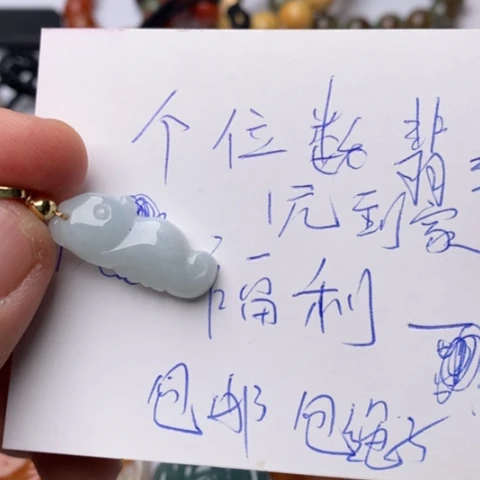 个位数翡
1元到家
福利
包邮包绳